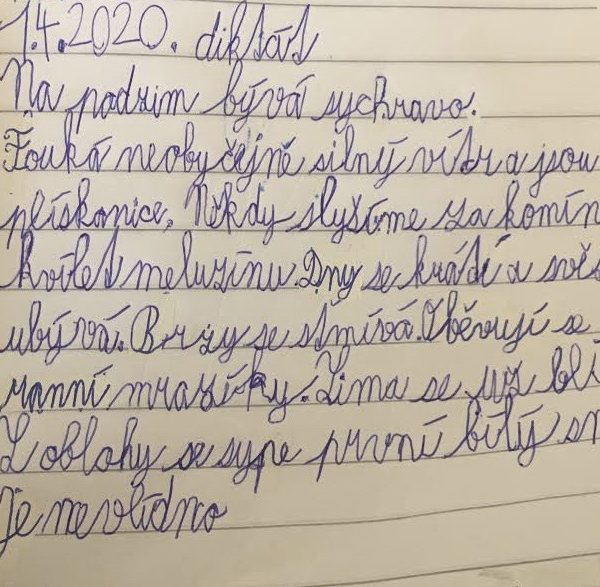 1.4.2020. diktát
Na podzim bývá sychravo.
Fouká neobyčejně silný vítr a jsou
plískanice. Někdy slyšíme za komín
kvílet meluzínu. Dny se krátí a svě
ubývá. Brzy se stmívá. Oběvují se
ranní mrazíky. Zima se už blí
Z oblohy se sype první bílý sn
Je nevlídno